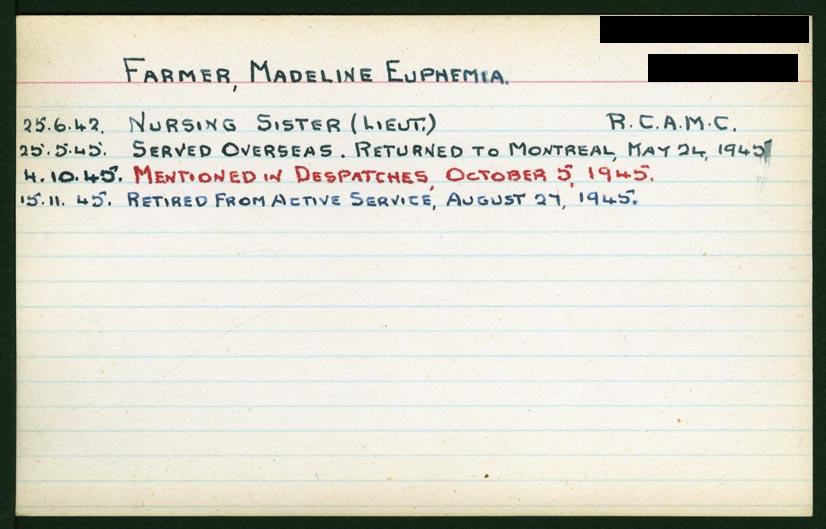 FARMER, MADELINE EUPHEMIA.
25.6.42. NURSING SISTER (LIEUT.) R.C.A.M.C.
25.5.45. SERVED OVERSEAS. RETURNED TO MONTREAL, MAY 24, 1945
4.10.45. MENTIONED IN DESPATCHES, OCTOBER 5, 1945.
15.11.45. RETIRED FROM ACTIVE SERVICE, AUGUST 27, 1945.